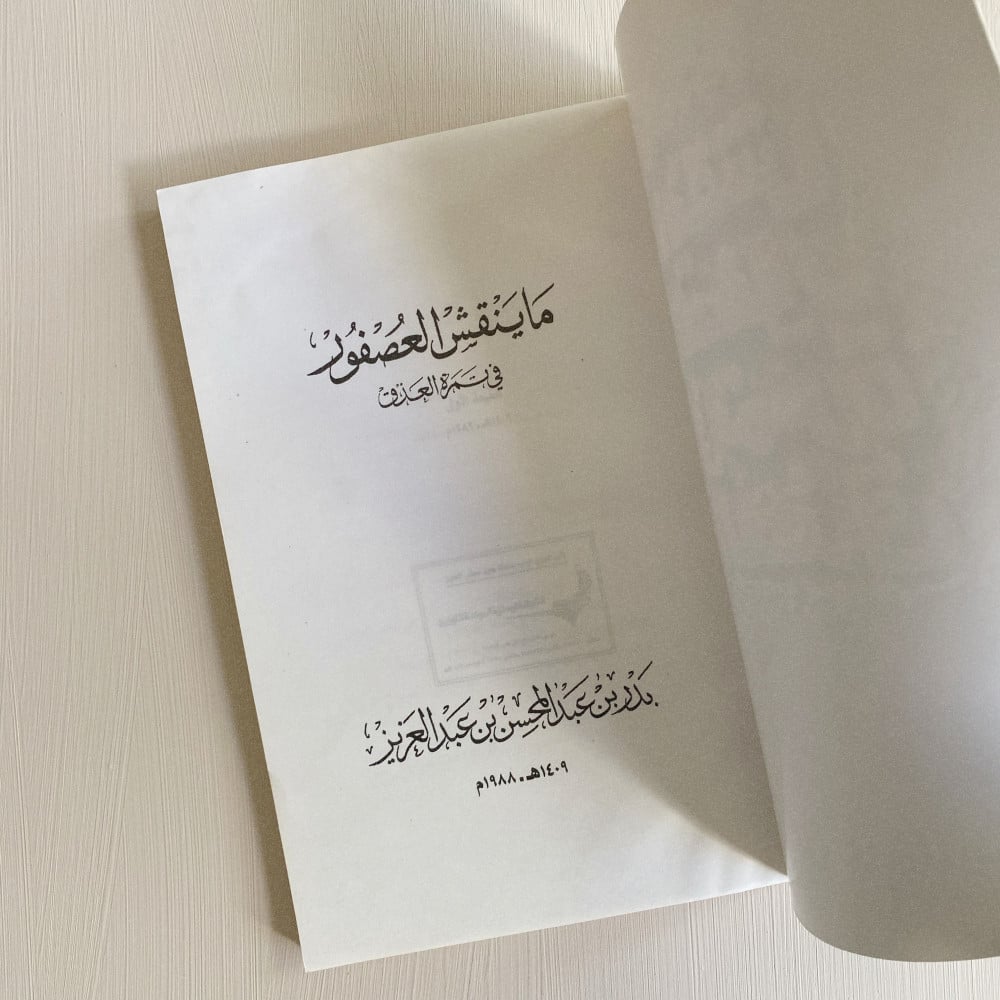 مَا يَنْقشْ العُصْفُورْ
في تَمرَة العَذق
بَدْر بنْ عَبْد المحسِن بنْ عَبْد العَزيز
١٤٠٩هـ - ١٩٨٨م